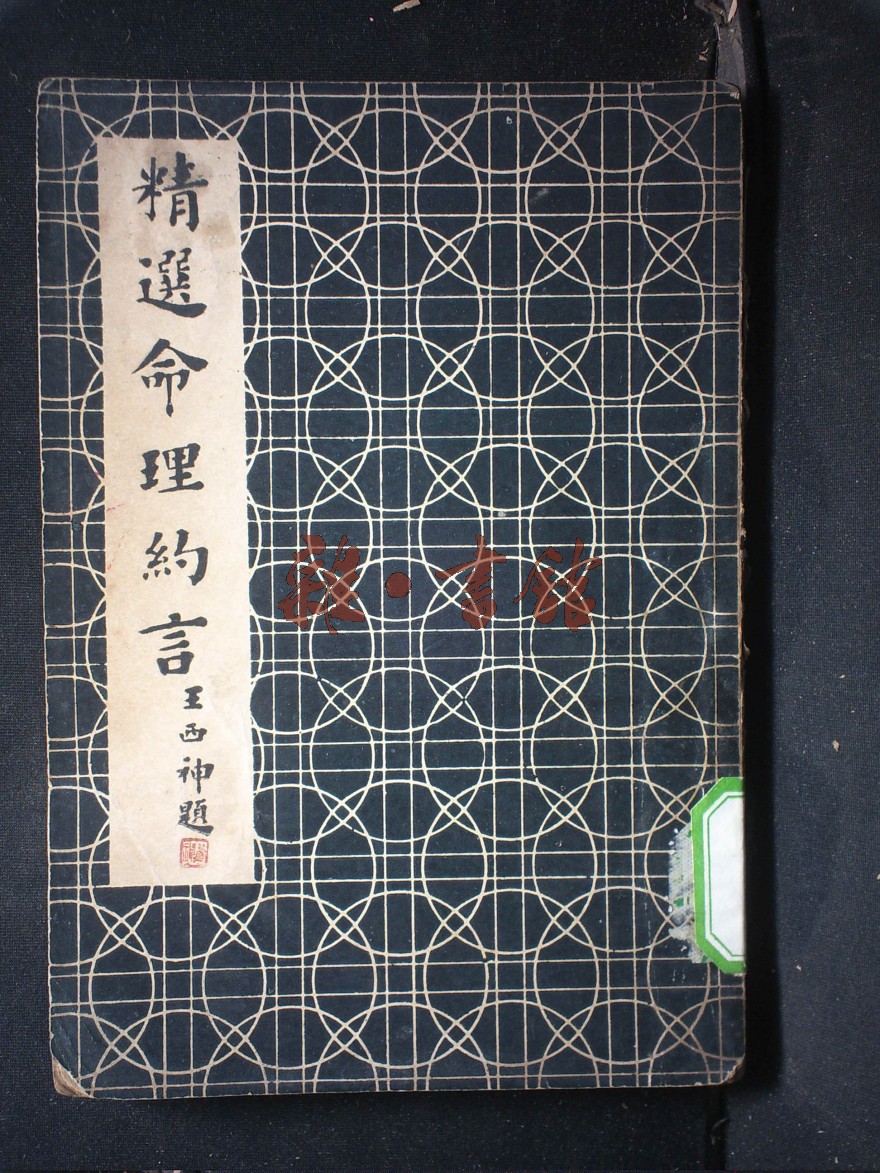 精選命理約言
王西神題
雜·書館